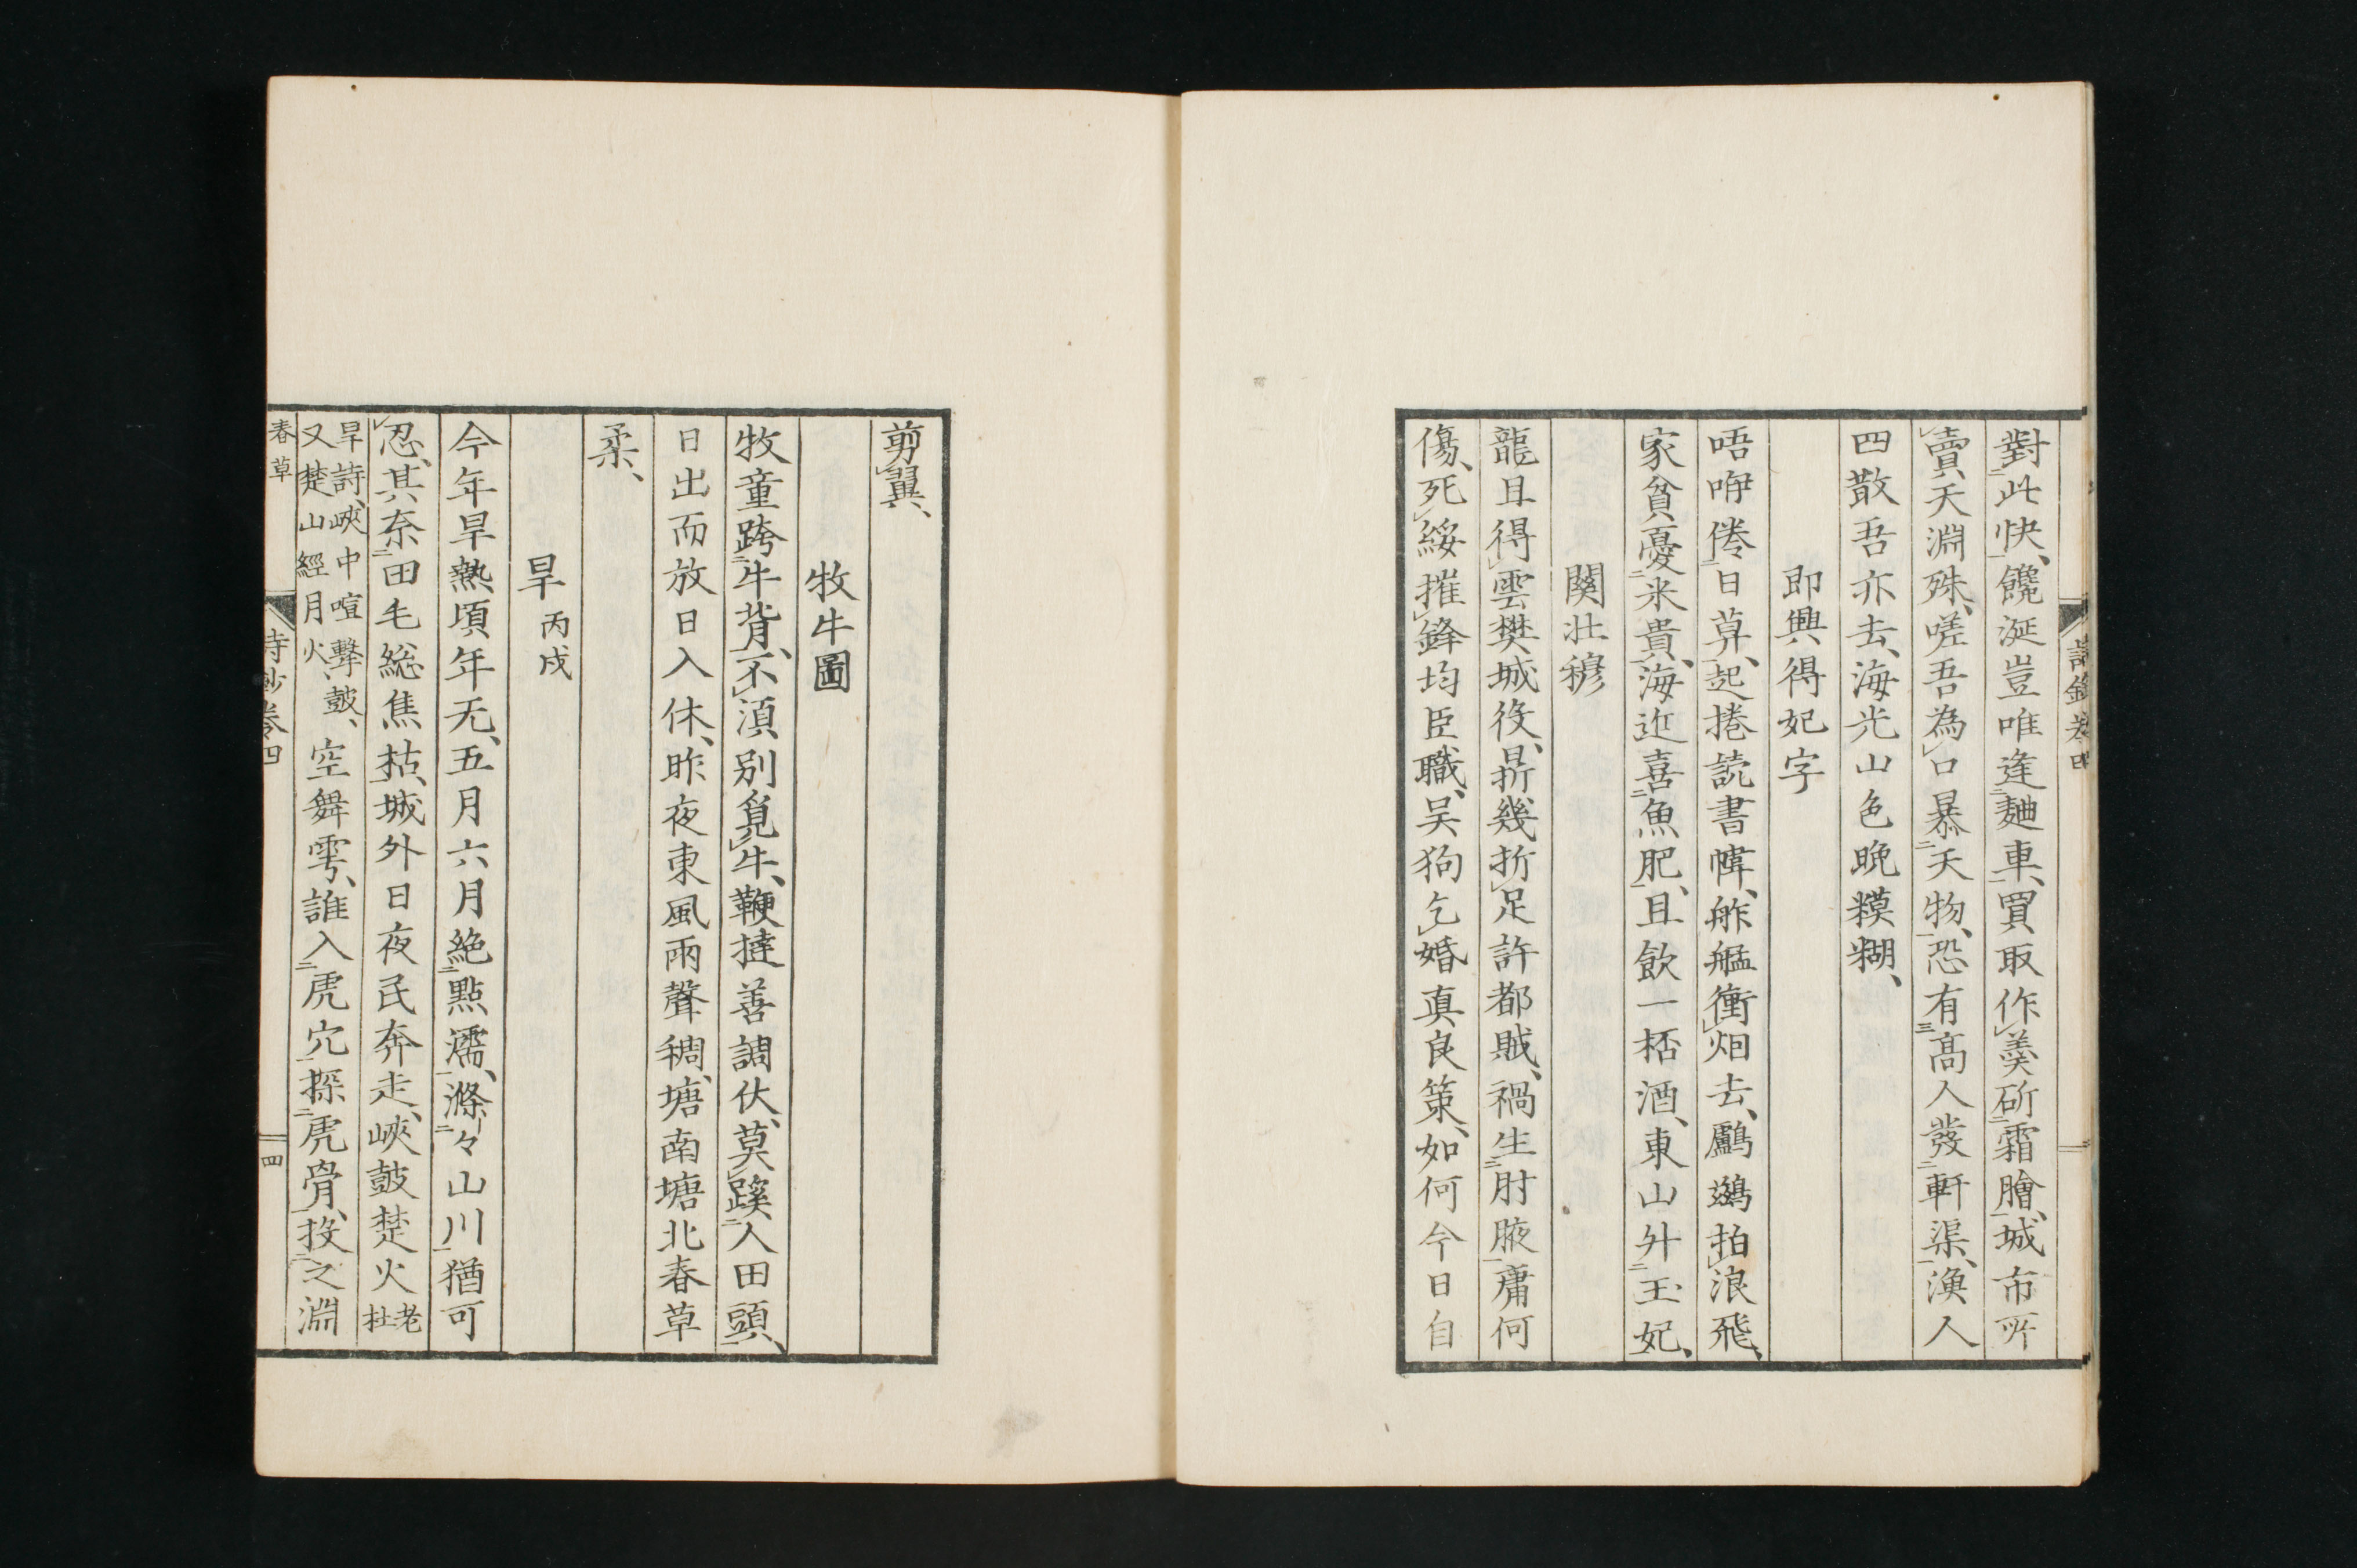 對此快、饞涎豈唯逢麯車、買取作羮斫霜膾、城市所
賣天淵殊、嗟吾為口暴天物、恐有高人發軒渠、漁人
四散吾亦去、海光山色晩糢糊、
即興得妃字
唔咿倦日算、起捲読書幃、舴艋衝烟去、鸕鷀拍浪飛、
家貧憂米貴、海近喜魚肥、且飲一桮酒、東山外玉妃、
關壮穆
龍且得雲樊城役、鼎折幾折足許都賊、禍生肘腋庸何
傷、死綏摧鋒均臣職、吴狗乞婚真良策、如何今日自
剪翼、
牧牛圖
牧童跨牛背、不湏別覓牛、鞭撻善調伏、莫蹊人田頭、
日出而放日入休、昨夜東風雨聲稠、塘南塘北春草
柔、
旱 丙戌
今年旱熱頃年无、五月六月絶點濡、滌々山川猶可
忍、其奈田毛総焦枯、城外日夜民奔走、峽皷楚火 老杜
旱詩、峽中喧擊皷、
又楚山經月火
空舞雩、誰入虎穴探虎骨、投之淵
春草
詩鈔卷四
四